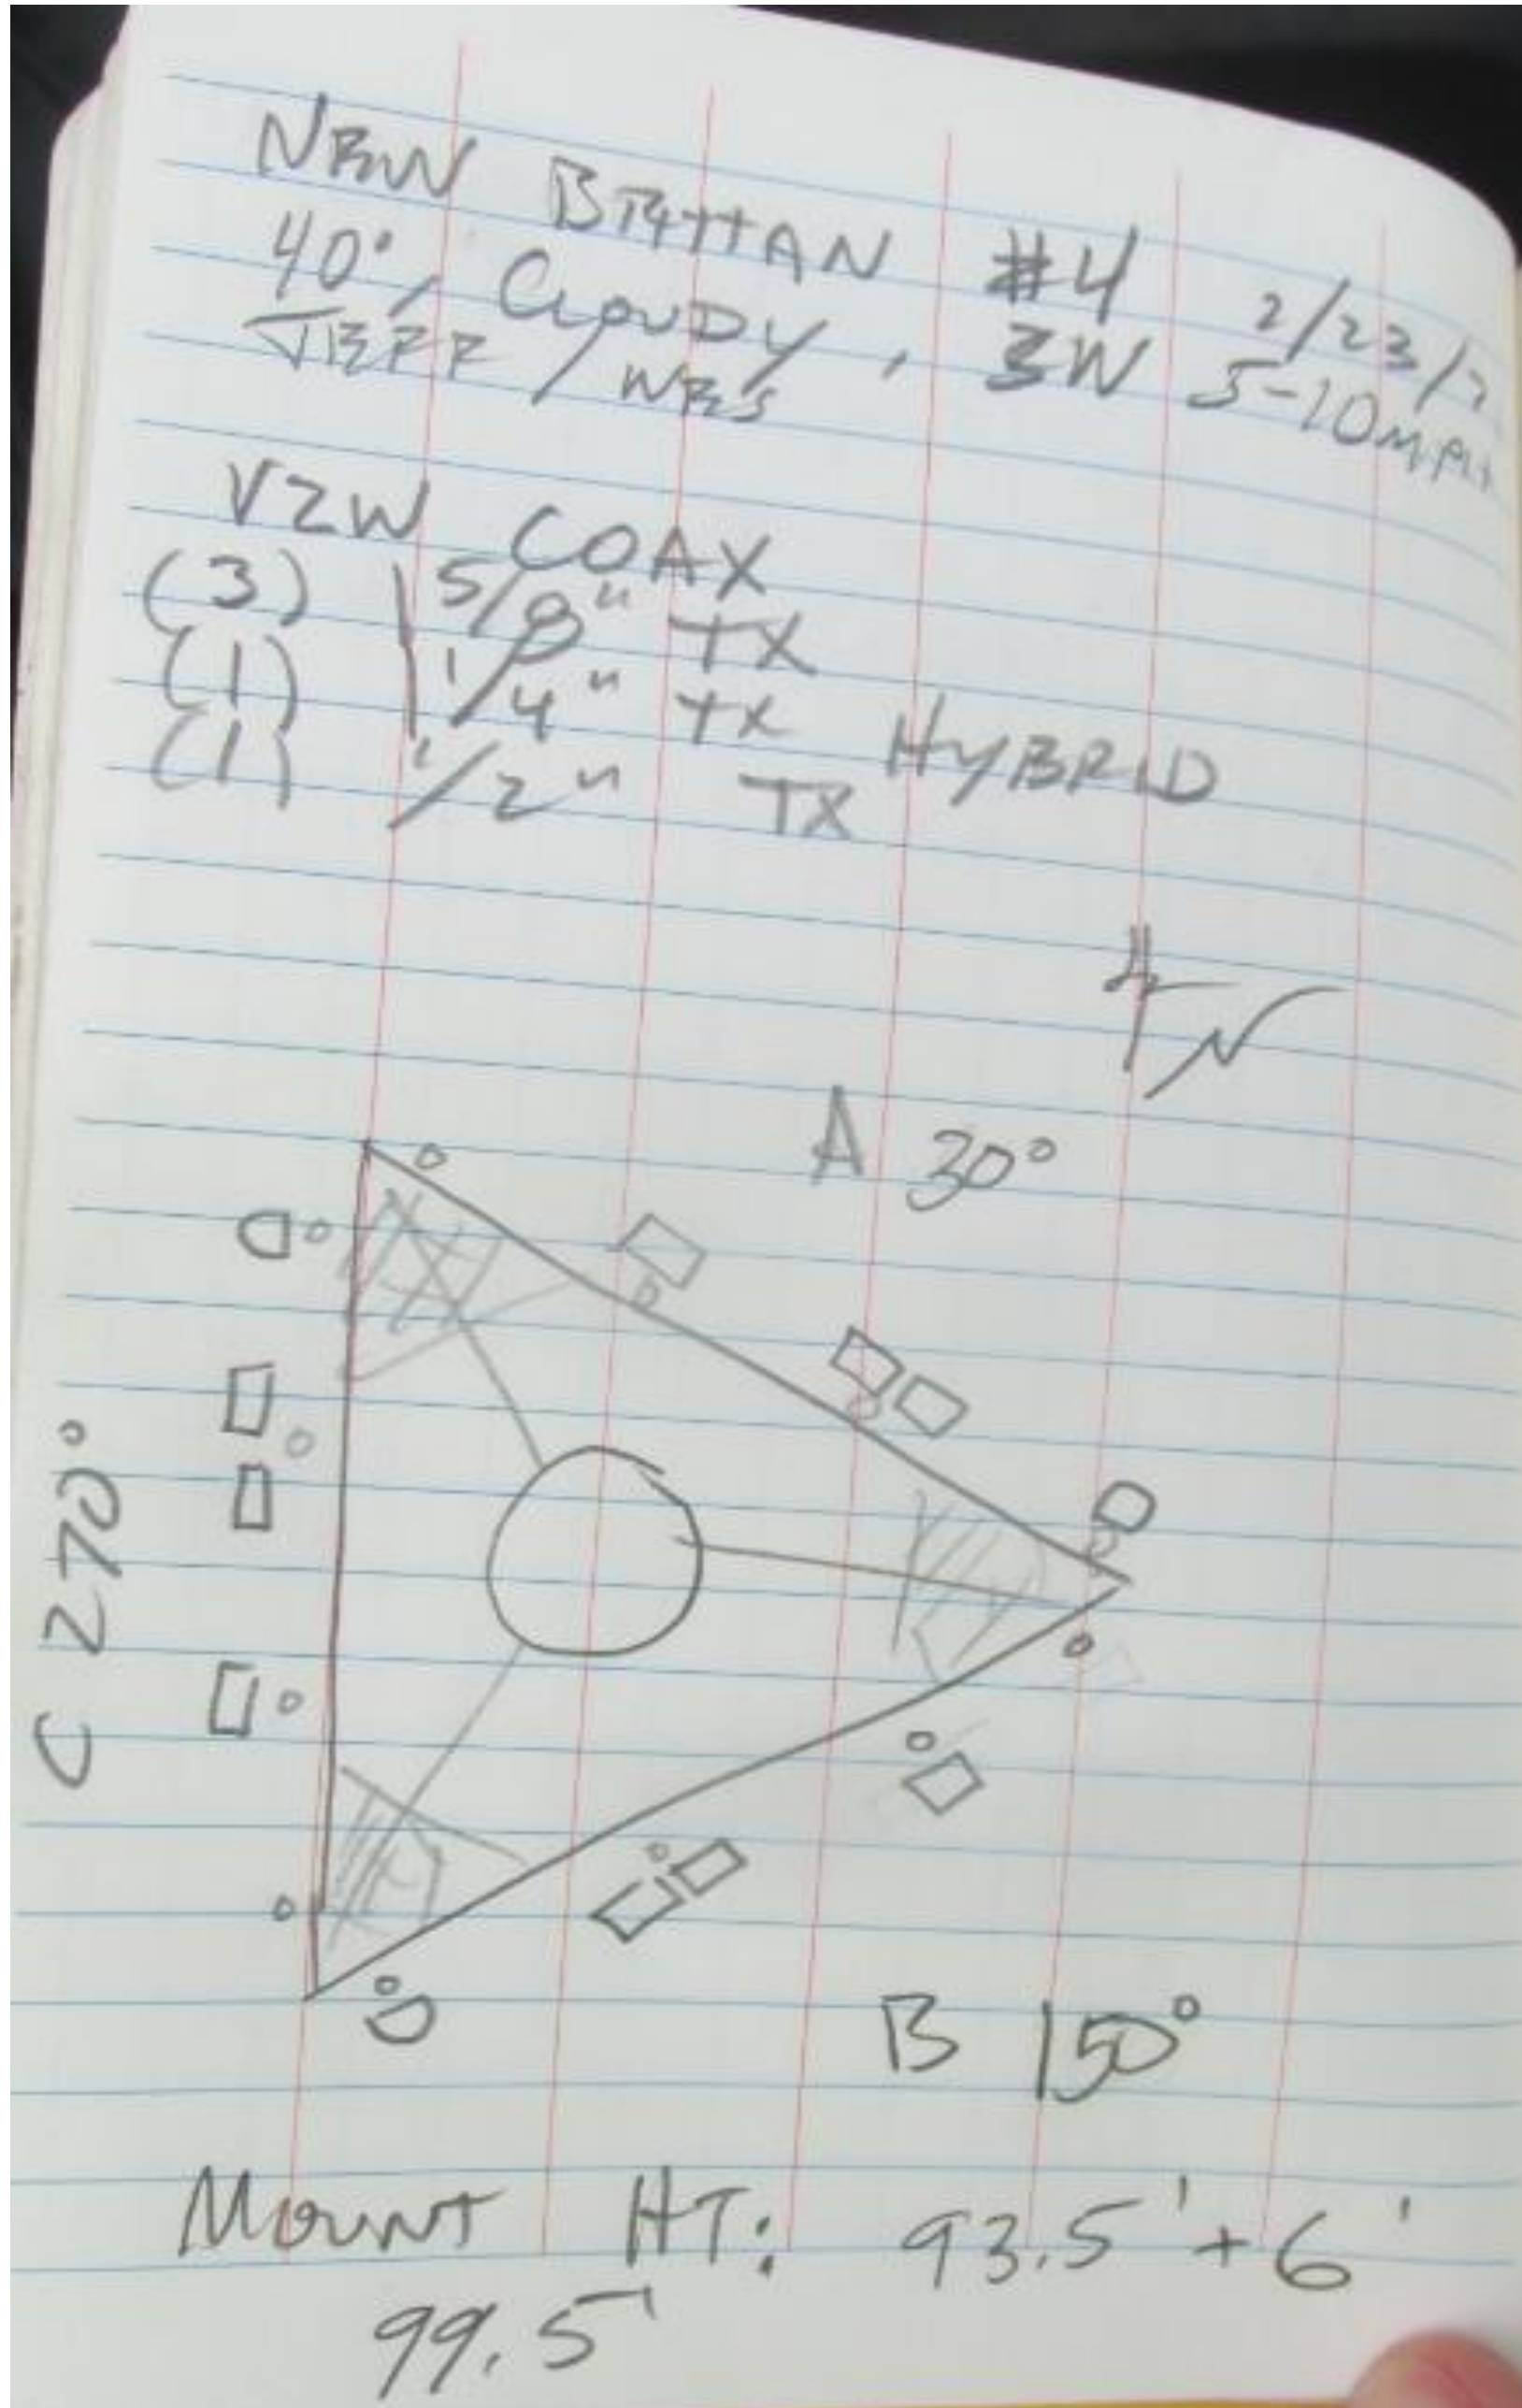 NEW BRITTAN #4 2/23/
40°, CLOUDY, SW 5-10MPH
JEFF / WES
VZW COAX
(3) 1 5/8" TX
(1) 1 1/4" TX HYBRID
(1) 1/2" TX
N
A 30°
C 270°
B 150°
MOUNT HT: 93.5' + 6'
99.5'